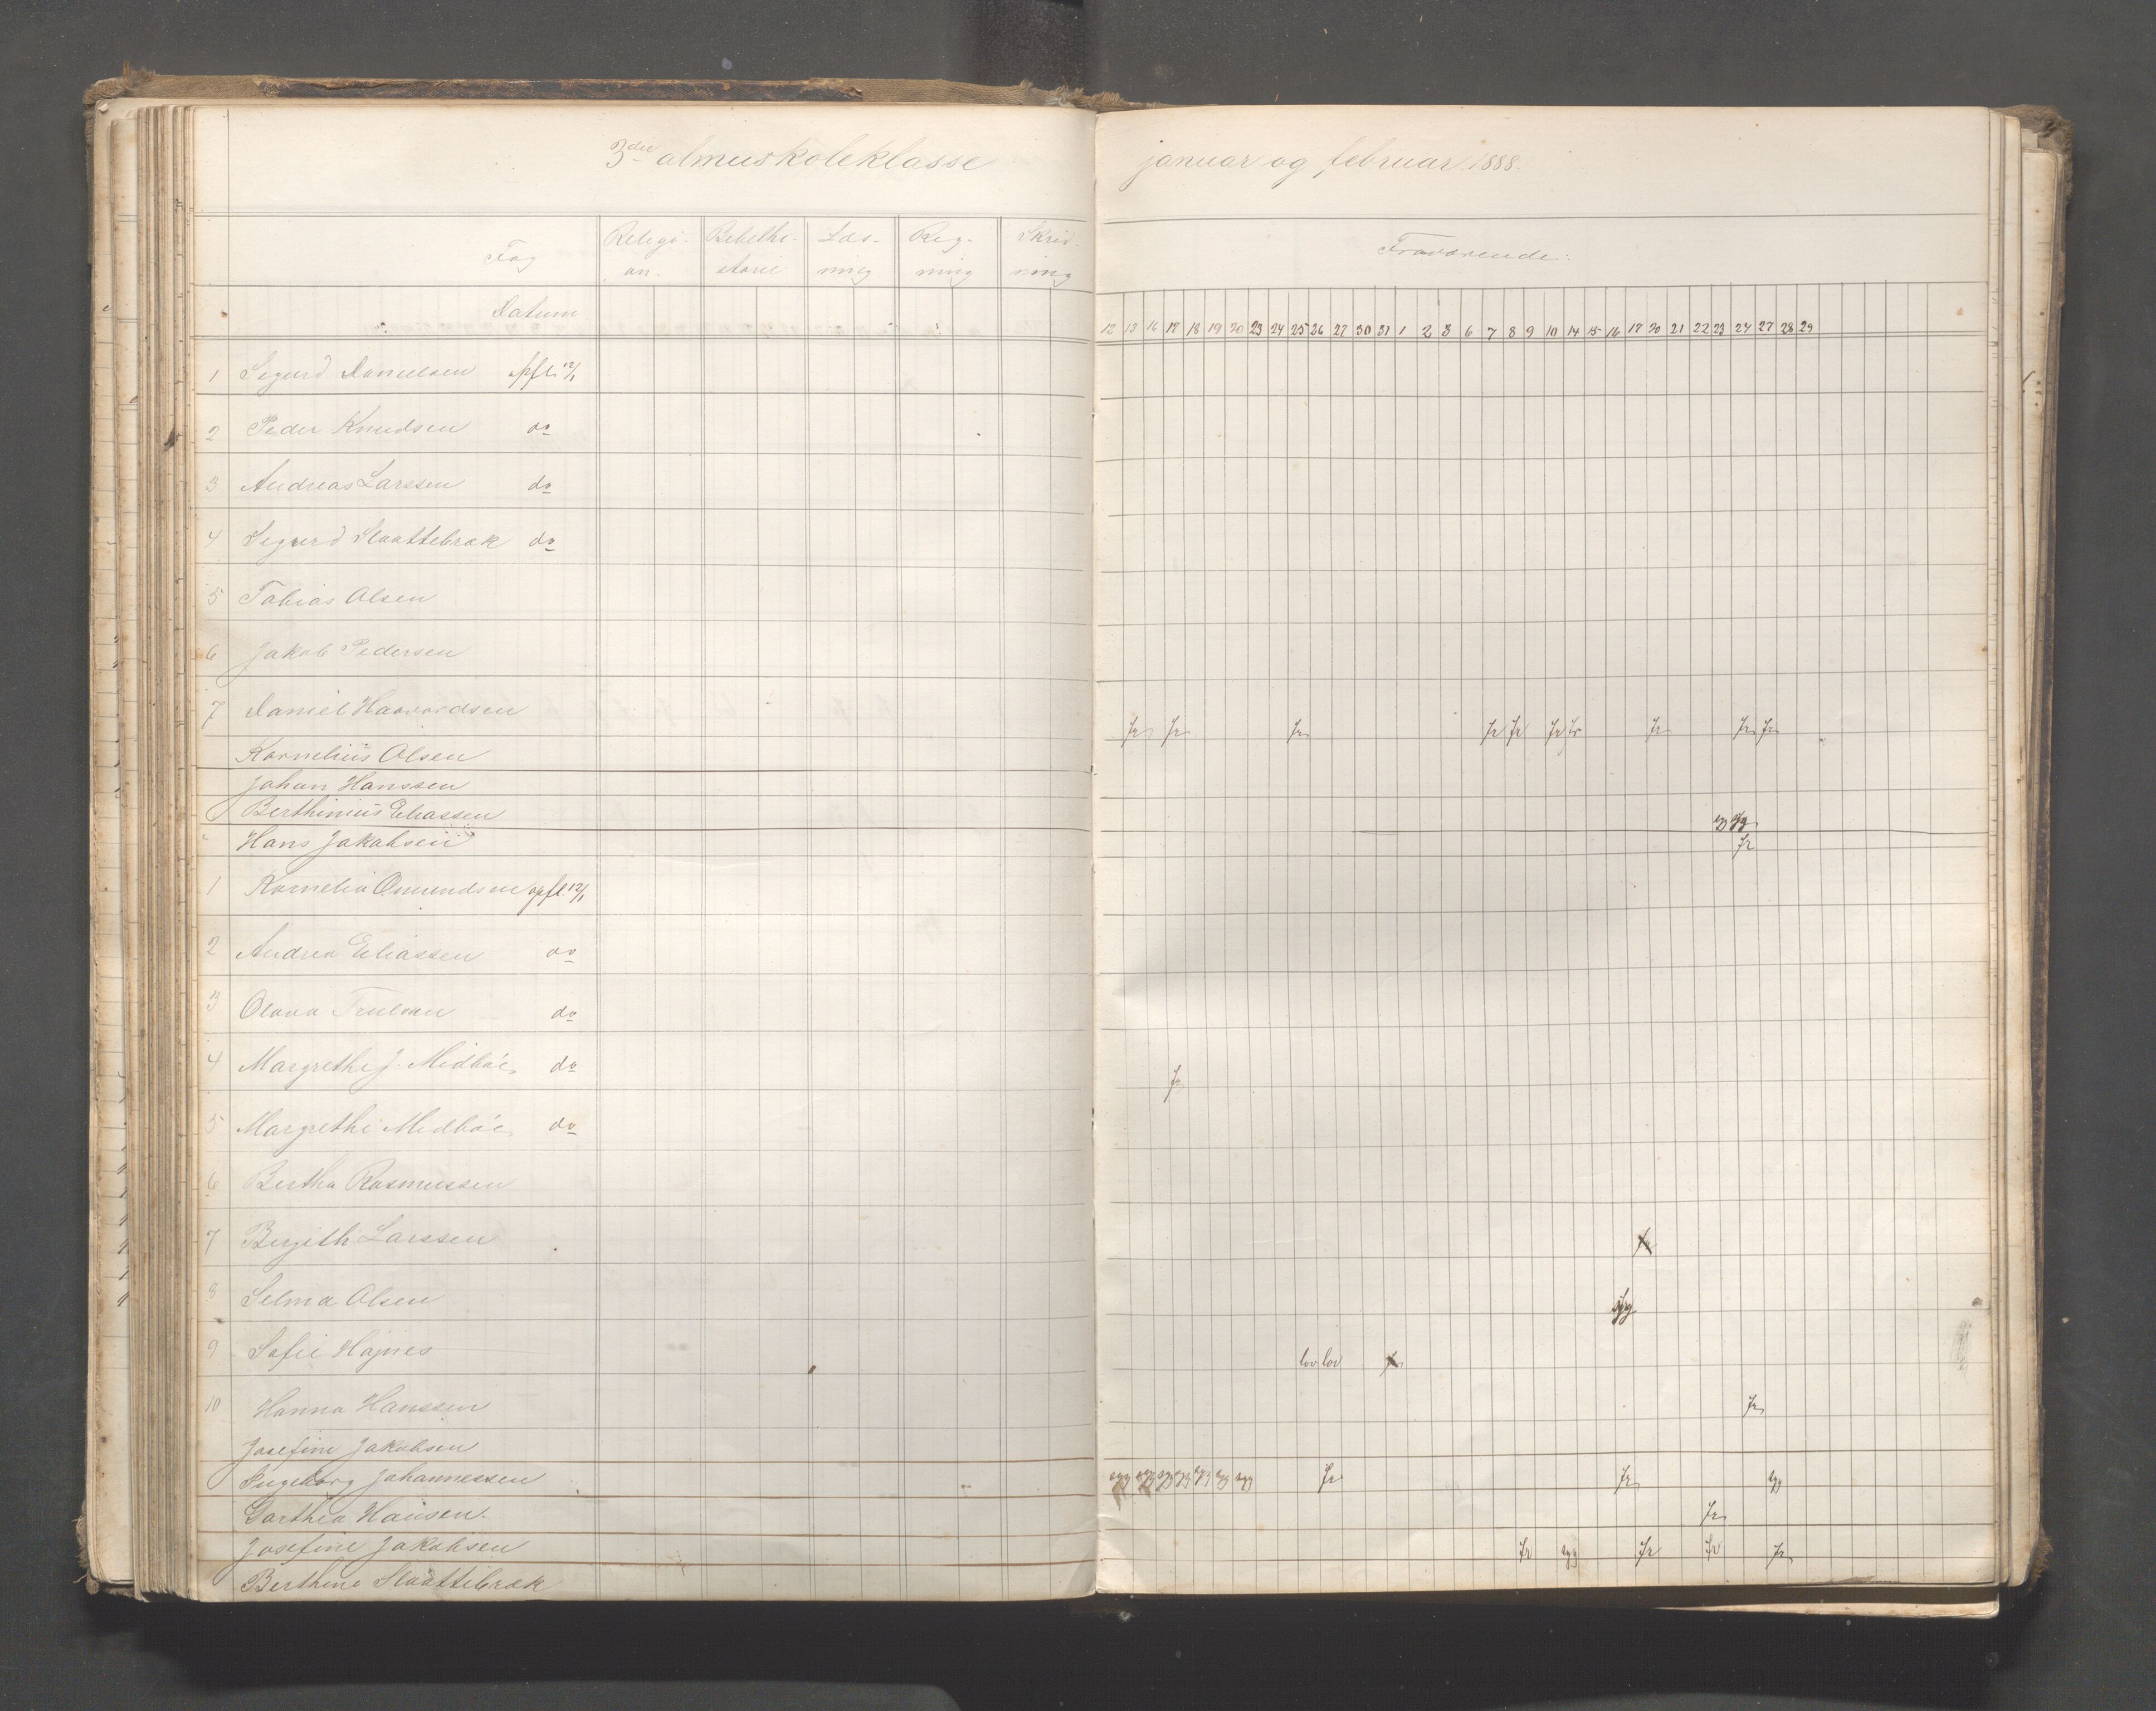 3die almueskoleklasse
januar og februar 1888.
Fag
Religi- on.
Bibelhi- storie
Læs- ning
Reg- ning
Skriv- ning
Fraværende:
Datum
12 13 16 17 18 19 20 23 24 25 26 27 30 31 1 2 3 6 7 8 9 10 14 15 16 17 20 21 22 23 24 27 28 29
1 Sigurd Danielsen opfl. 12/1
2 Peder Knudsen do
3 Andreas Larssen do
4 Sigurd Slaattebræk do
5 Tobias Olsen
6 Jakob Pedersen
7 Daniel Haavardsen
fr fr fr fr fr fr fr fr fr fr
Kornelius Olsen
Johan Hanssen
Berthinius Eliassen
syg syg
Hans Jakobsen
fr
1 Kornelia Omundsen opfl. 12/1
2 Andrea Eliassen do
3 Olava Trulsen do
4 Margrethe J. Midbøe do
fr
5 Margrethe Midbøe do
6 Bertha Rasmussen
7 Birgith Larssen
fr
8 Selma Olsen
syg
9 Sofie Højnes
lov lov fr
10 Hanna Hanssen
fr
Josefine Jakobsen
Ingeborg Johannessen
syg syg syg syg syg syg syg fr fr syg
Dorthea Hansen.
fr
Josefine Jakobsen
fr syg fr fr fr
Berthine Slaattebræk